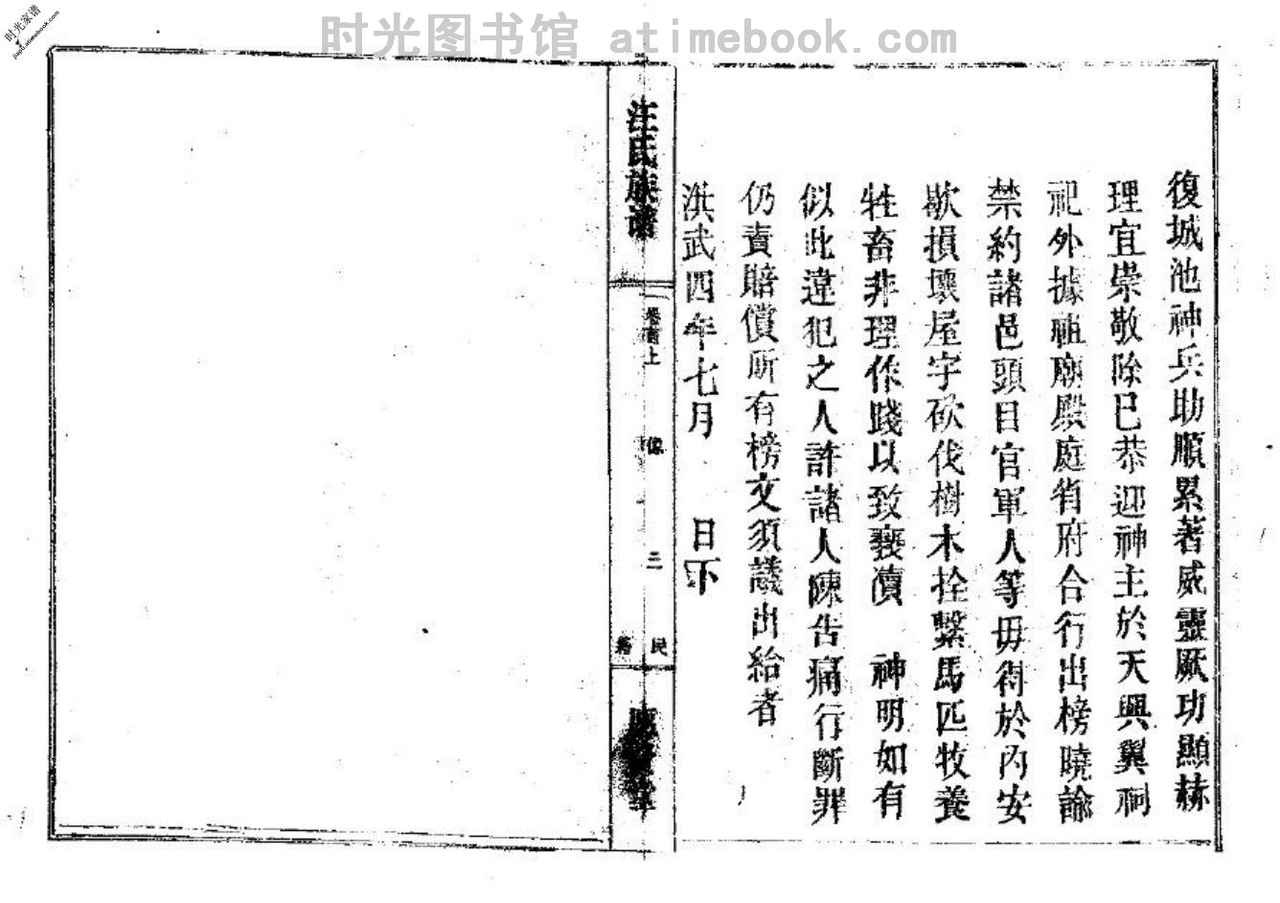 时光图书馆 atimebook.com
时光家谱
復城池神兵助順累著威靈厥功顯赫
理宜崇敬除已恭迎神主於天興翼祠
祀外據祖廟殿庭省府合行出榜曉諭
禁約諸邑頭目官軍人等毋得於內安
歇損壞屋宇砍伐樹木拴繫馬匹牧養
牲畜非理作踐以致褻瀆 神明如有
似此違犯之人許諸人陳告痛行斷罪
仍責賠償所有榜文須議出給者
洪武四年七月 日下
汪氏族谱
卷首上
像
三
民